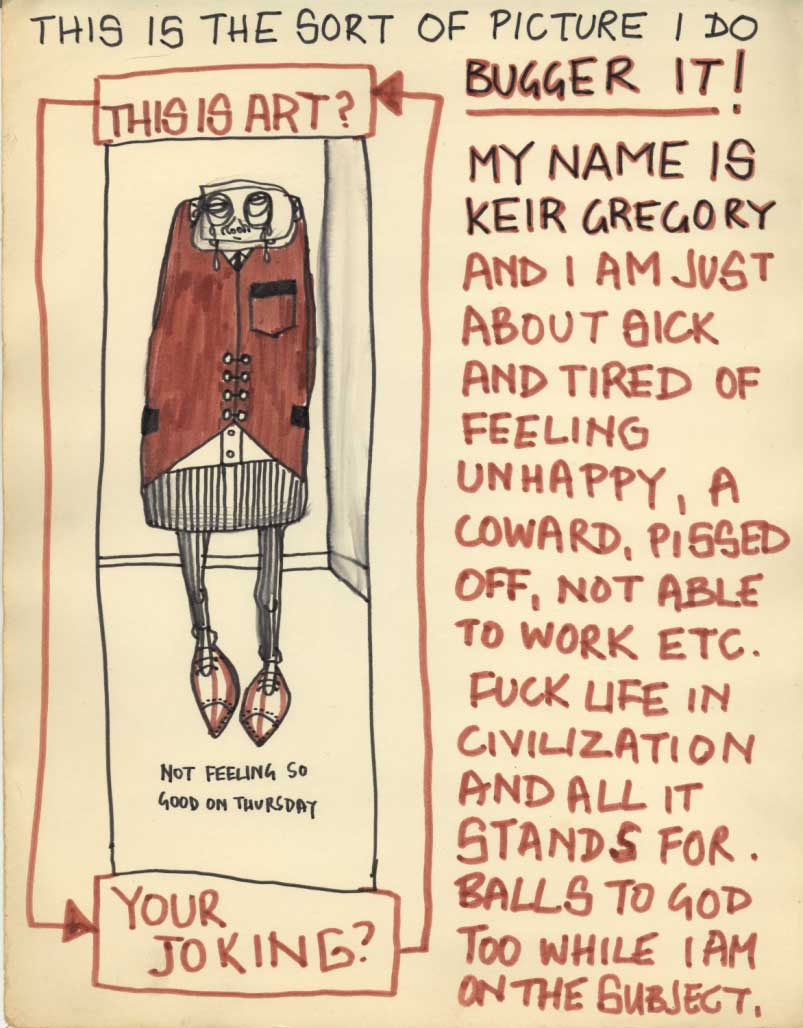 THIS IS THE SORT OF PICTURE I DO
BUGGER IT!
THIS IS ART?
NOT FEELING SO
GOOD ON THURSDAY
YOUR
JOKING?
MY NAME IS
KEIR GREGORY
AND I AM JUST
ABOUT SICK
AND TIRED OF
FEELING
UNHAPPY, A
COWARD, PISSED
OFF, NOT ABLE
TO WORK ETC.
FUCK LIFE IN
CIVILIZATION
AND ALL IT
STANDS FOR.
BALLS TO GOD
TOO WHILE I AM
ON THE SUBJECT.